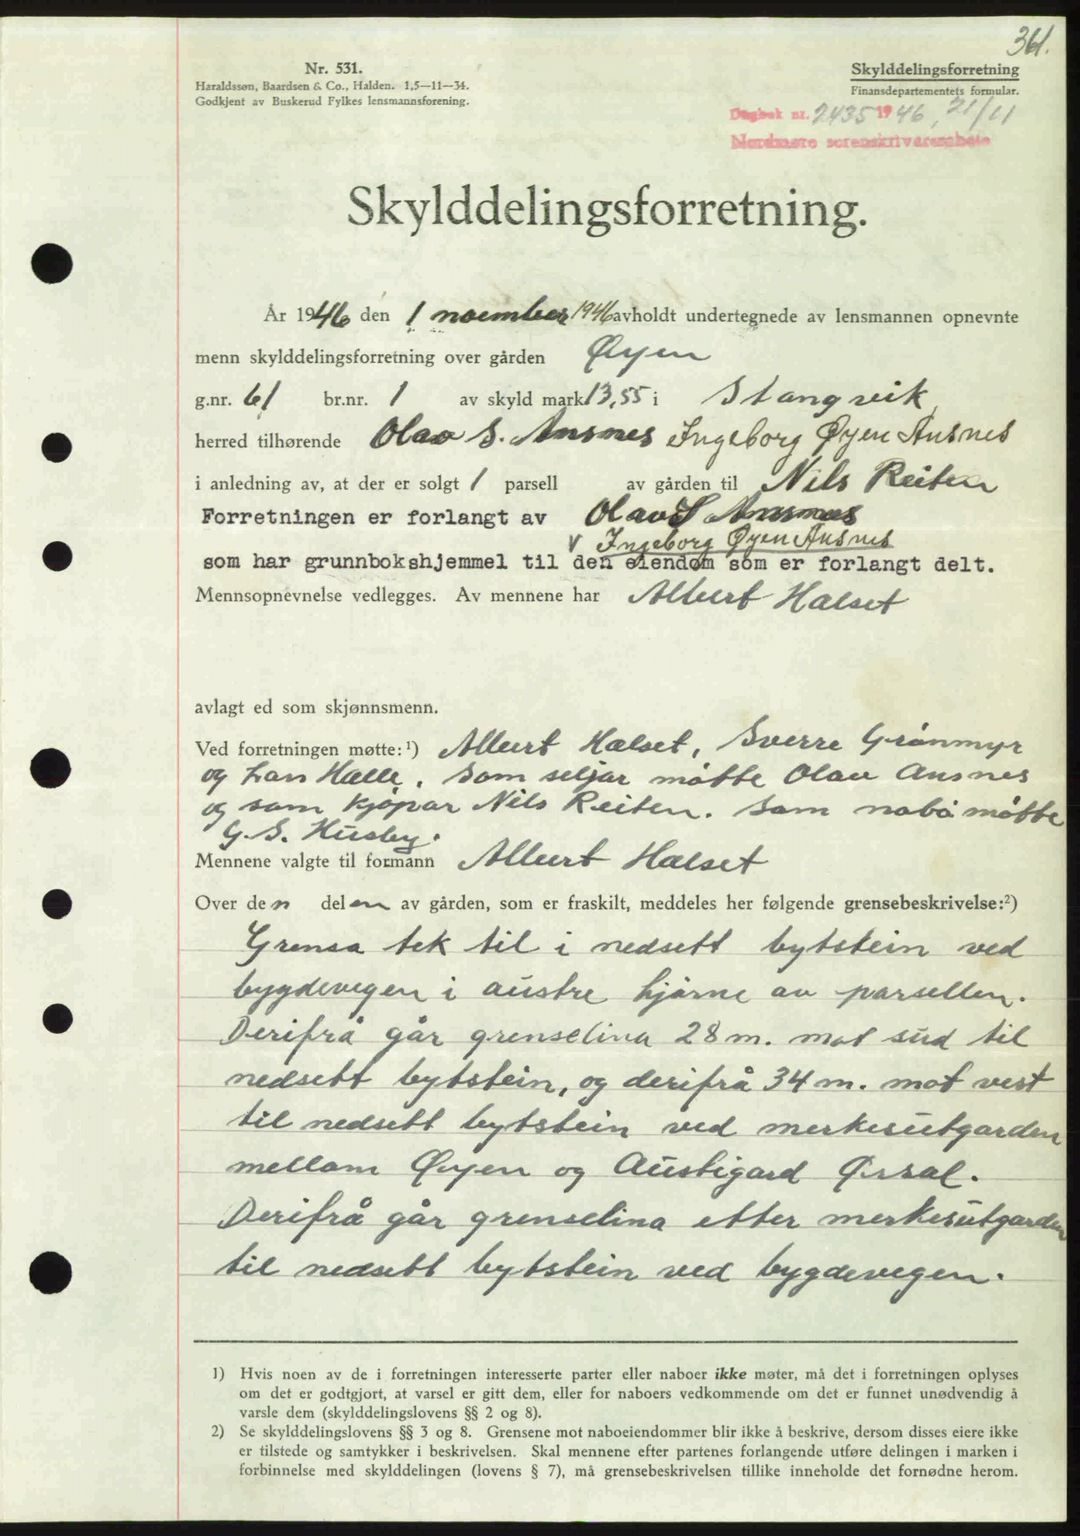 361.
Nr. 531.
Haraldssøn, Baardsen & Co., Halden. 1,5—11—34.
Godkjent av Buskerud Fylkes lensmannsforening.
Skylddelingsforretning
Finansdepartementets formular.
Dagbok nr. 2435 1946, 21/11
Nordmøre sorenskriverembete
Skylddelingsforretning.
År 1946 den 1 noember 1946 avholdt undertegnede av lensmannen opnevnte
menn skylddelingsforretning over gården Øyen
g.nr. 61 br.nr. 1 av skyld mark 13,55 i Stangvik
herred tilhørende Olav S. Ansnes Ingeborg Øyen Ansnes
i anledning av, at der er solgt 1 parsell av gården til Nils Reiten
Forretningen er forlangt av Olav S Ansnes
v Ingeborg Øyen Ansnes
som har grunnbokshjemmel til den eiendom som er forlangt delt.
Mennsopnevnelse vedlegges. Av mennene har Albert Halset
avlagt ed som skjønnsmenn.
Ved forretningen møtte:¹) Albert Halset, Sverre Grønmyr
og Lars Halle. Som seljar møtte Olav Ansnes
og som kjøpar Nils Reiten. Som nabo møtte
G. S. Husby.
Mennene valgte til formann Albert Halset
Over den delen av gården, som er fraskilt, meddeles her følgende grensebeskrivelse:²)
Grensa tek til i nedsett bytstein ved
bygdevegen i austre hjørne av parsellen.
Derifrå går grenselina 28 m. mot sud til
nedsett bytstein, og derifrå 34 m. mot vest
til nedsett bytstein ved merkesutgarden
mellom Øyen og Austigard Ørsal.
Derifrå går grenselina etter merkesutgarden
til nedsett bytstein ved bygdevegen.
1) Hvis noen av de i forretningen interesserte parter eller naboer ikke møter, må det i forretningen oplyses
om det er godtgjort, at varsel er gitt dem, eller for naboers vedkommende om det er funnet unødvendig å
varsle dem (skylddelingslovens §§ 2 og 8).
2) Se skylddelingslovens §§ 3 og 8. Grensene mot naboeiendommer blir ikke å beskrive, dersom disses eiere ikke
er tilstede og samtykker i beskrivelsen. Skal mennene efter partenes forlangende utføre delingen i marken i
forbinnelse med skylddelingen (lovens § 7), må grensebeskrivelsen tillike inneholde det fornødne herom.